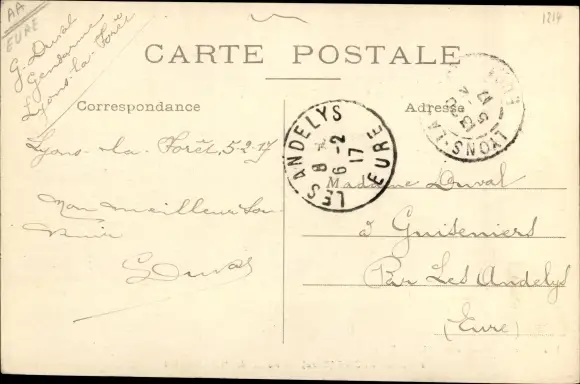 AA
EURE
1214
G. Duval
Gendarme
Lyons-la-Forêt
CARTE POSTALE
Correspondance
Adresse
LYONS-LA
EURE
LES ANDELYS
8 6-2
17
EURE
Lyons-la-Forêt, 5-2-17
Mon meilleur Sou
venir
G Duval
Madame Duval
à Guiseniers
Par Les Andelys
(Eure)